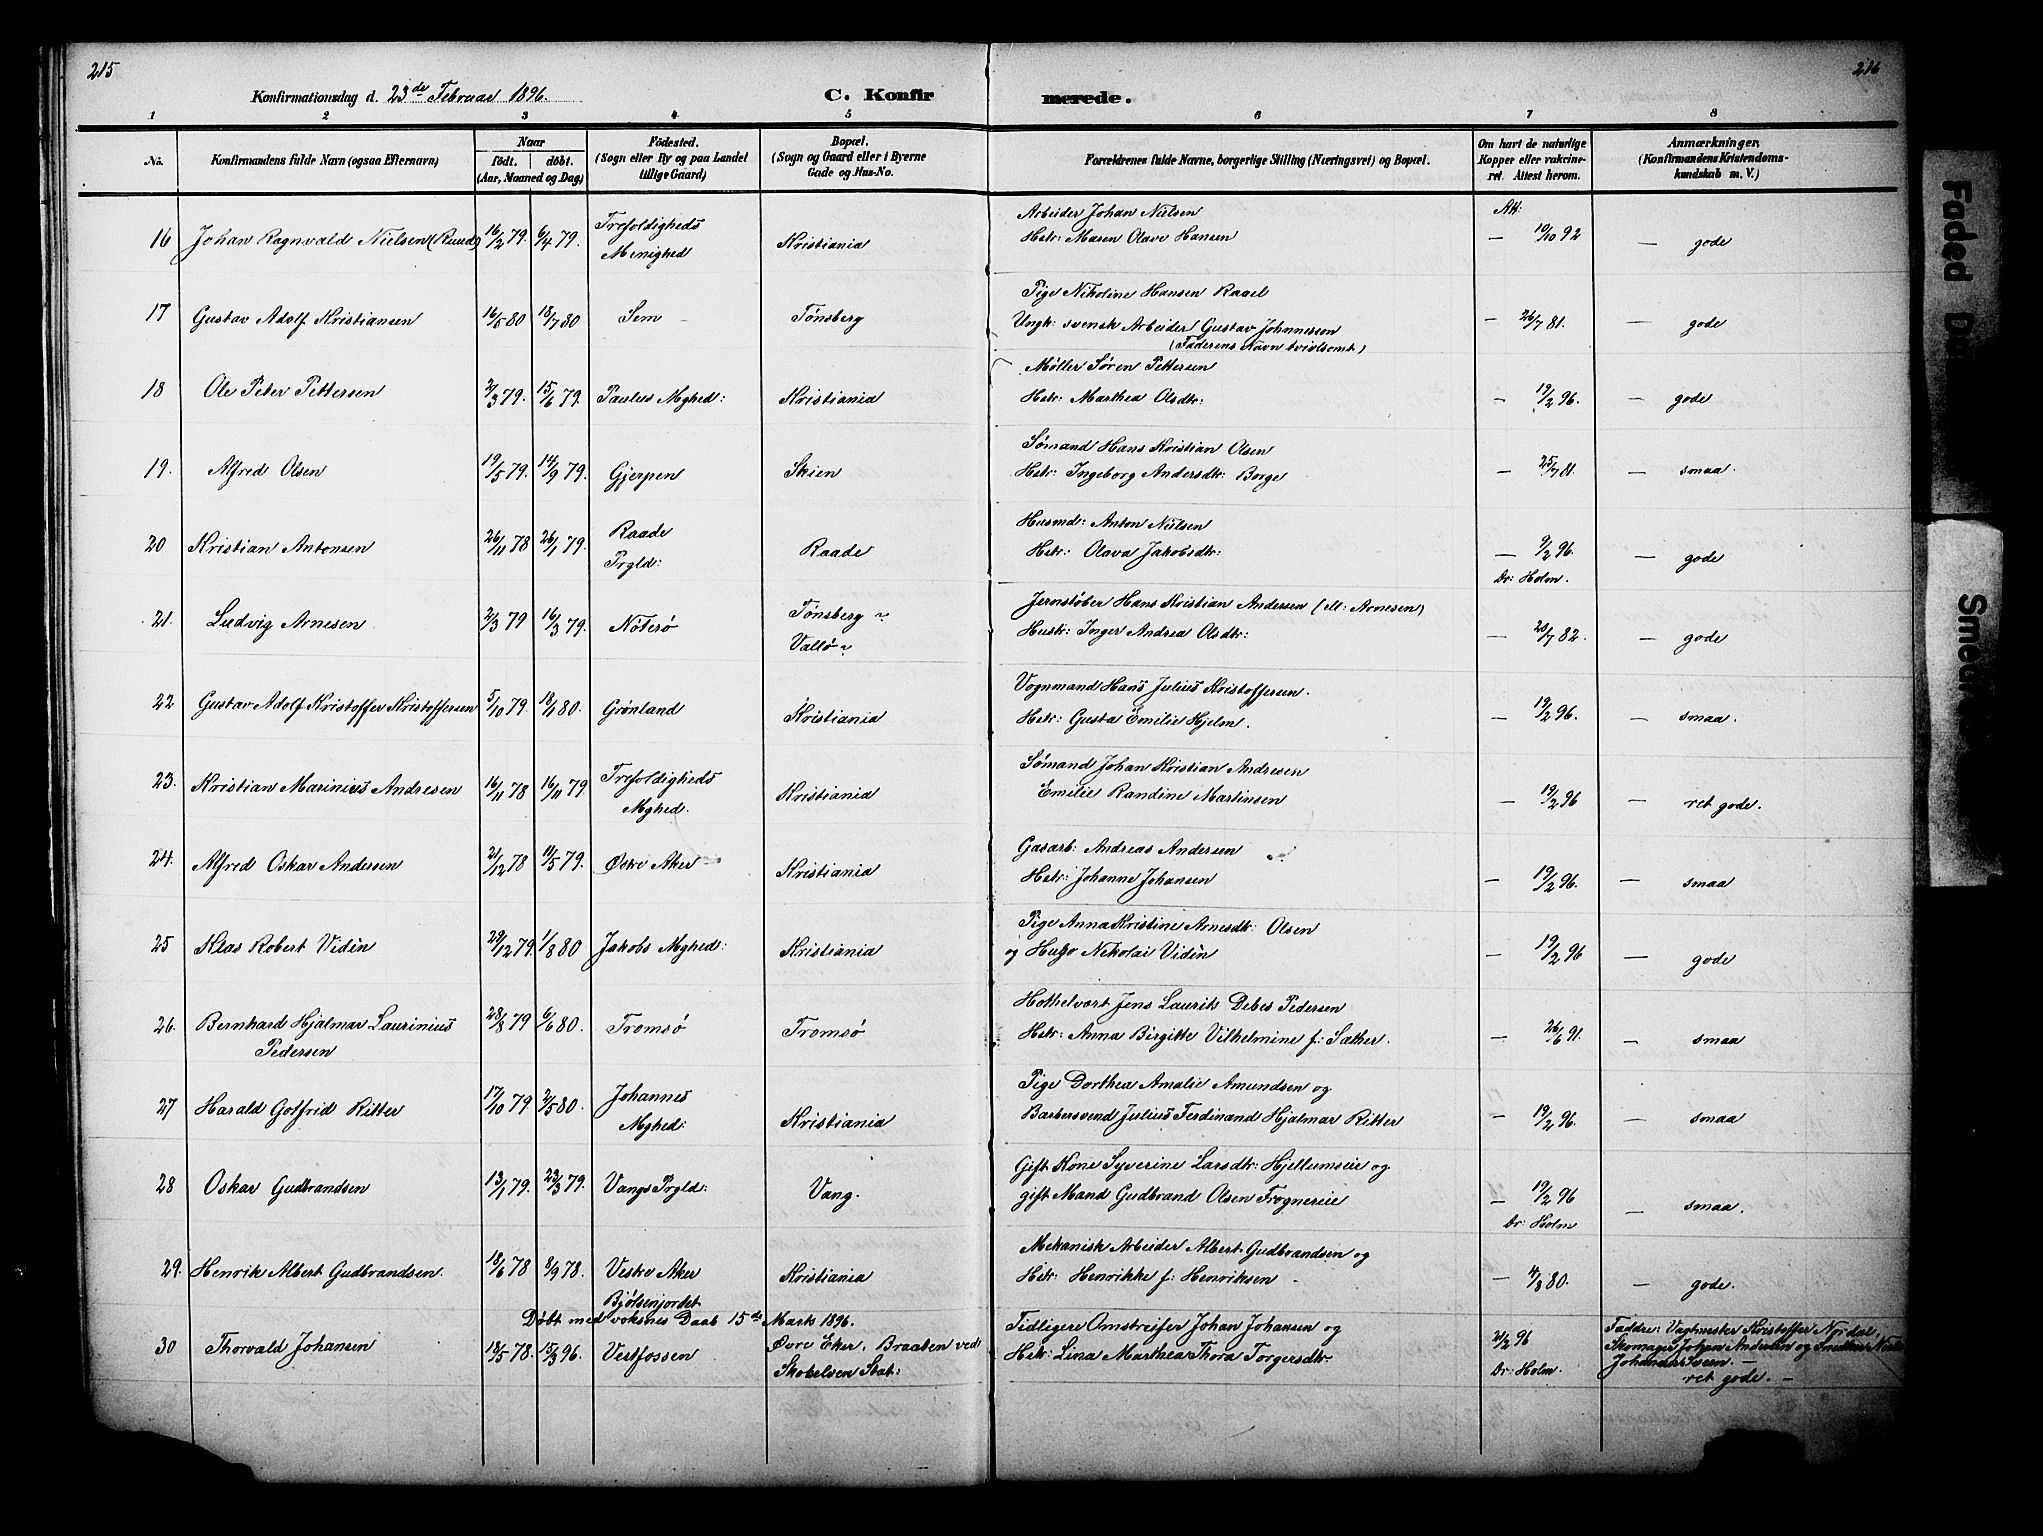 215
216
Konfirmationsdag d. 23de Februar 1896.
C. Konfirmerede.
1 2 3 4 5 6 7 8
No. Konfirmandens fulde Navn (ogsaa Efternavn) Naar født. døbt. (Aar, Maaned og Dag) Fødested. (Sogn eller By og paa Landet tillige Gaard) Bopæl. (Sogn og Gaard eller i Byerne Gade og Hus-No. Forældrenes fulde Navne, borgerlige Stilling (Næringsvei) og Bopæl. Om havt de naturlige Kopper eller vakcineret. Attest herom. Anmærkninger, (Konfirmandens Kristendomskundskab m. V.)
16 Johan Ragnvald Nielsen (Ruud) 16/2 79. 6/4 79. Trefoldigheds Menighed Kristiania
Arbeider Johan Nielsen
Hstr: Maren Olave Hansen Att: — 19/10 92 — gode
17 Gustav Adolf Kristiansen 16/5 80 18/7 80 Sem Tønsberg
Pige Nikoline Hansen Rael
Ungk: svensk Arbeider Gustav Johannesen — 26/7 81. — gode
(Faderens Navn tvivlsomt)
18 Ole Peter Pettersen 2/3 79. 15/6 79. Paulus Mghed: Kristiania
Møller Søren Pettersen
Hstr: Marthea Olsdtr: — 19/2 96. — gode
19. Alfred Olsen 19/5 79. 14/9 79. Gjerpen Skien
Sømand Hans Kristian Olsen
Hstr: Ingeborg Andersdtr: Borge — 25/7 81. — smaa.
20 Kristian Antonsen 26/11 78 26/1 79. Raade Prgld: Raade
Husmd: Anton Nielsen
Hstr: Olava Jakobsdtr: — 9/2 96. — gode
Dr: Holm.
21. Ludvig Arnesen 2/3 79 16/3 79. Nøterø Tønsberg Vallø
Jernstøber Hans Kristian Andersen (ell: Arnesen)
Hustr: Inger Andrea Olsdtr: — 20/7 82. — gode
22 Gustav Adolf Kristoffer Kristoffersen 5/10 79. 18/1 80. Grønland Kristiania
Vognmand Hans Julius Kristoffersen.
Hstr: Gusta Emilie Hjelm. — 19/2 96. — smaa.
23. Kristian Marinius Andresen 16/11 78 16/11 79. Trefoldigheds Mghed. Kristiania
Sømand Johan Kristian Andresen
Emilie Randine Martinsen — 19/2 96 — ret gode.
24. Alfred Oskar Andersen 21/12 78 11/5 79. Østre Aker Kristiania
Gasarb: Andreas Andersen
Hstr: Johanne Johansen — 19/2 96. — smaa
25 Klas Robert Vidin 29/12 79. 1/8 80 Jakobs Mghed: Kristiania
Pige Anna Kristine Arnesdtr: Olsen
og Hugo Nikolai Vidin — 19/2 96 — gode
26. Bernhard Hjalmar Laurinius Pedersen 28/8 79 6/6 80. Tromsø Tromsø
Hothelvært Jens Laurits Debes Pedersen
Hstr: Anna Birgitte Vilhelmine f: Sæther. — 26/6 91. — smaa
27 Harald Gotfrid Ritter 17/10 79 2/5 80. Johannes Mghed: Kristiania
Pige Dorthea Amalie Amundsen og
Barbersvend Julius Ferdinand Hjalmar Ritter — 19/2 96. — smaa
28 Oskar Gudbrandsen 13/1 79. 23/3 79. Vangs Prgld: Vang.
Gift Kone Syverine Larsdtr: Hjellumseie og
gift Mand Gudbrand Olsen Frognereie — 19/2 96 — smaa.
Dr: Holm
29. Henrik Albert Gudbrandsen. 18/6 78 8/9 78. Vestre Aker Bjølsenjordet Kristiania
Mekanisk Arbeider Albert Gudbrandsen og
Hstr: Henrikke f: Henriksen — 4/8 80. — gode.
Døbt med voksnes Daab 15de Marts 1896.
30 Thorvald Johansen 18/5 78. 15/3 96. Vestfossen Øvre Eker. Braaten ved Skotselven Stat:
Tidligere Omstreifer Johan Johansen og
Hstr: Lina Marthea Thora Torgersdtr 21/2 96
Dr: Holm.
Faddre: Vagtmester Kristoffer Nordal,
Skomager Johan Andersen og Snedker
Johannes Sveen. —
ret gode. —
Faded D